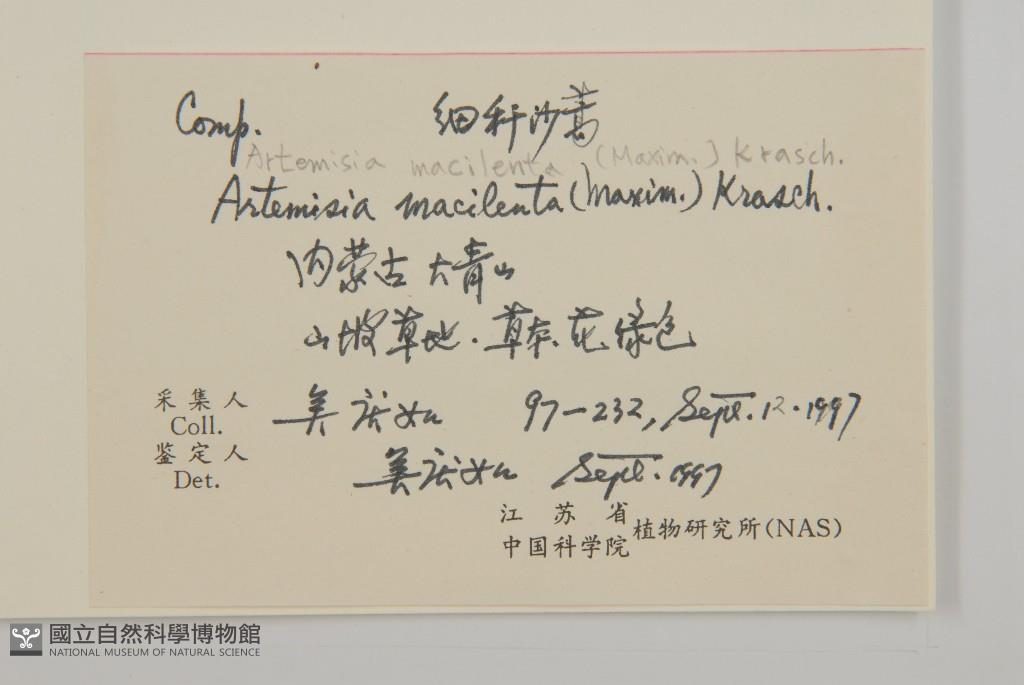 Comp. 细秆沙蒿
Artemisia macilenta (Maxim.) Krasch.
Artemisia macilenta (Maxim.) Krasch.
内蒙古 大青山
山坡草地. 草本. 花绿色
采集人
Coll. 97-232, Sept. 12. 1997
鉴定人
Det. Sept. 1997
江苏省
中国科学院 植物研究所(NAS)
國立自然科學博物館
NATIONAL MUSEUM OF NATURAL SCIENCE